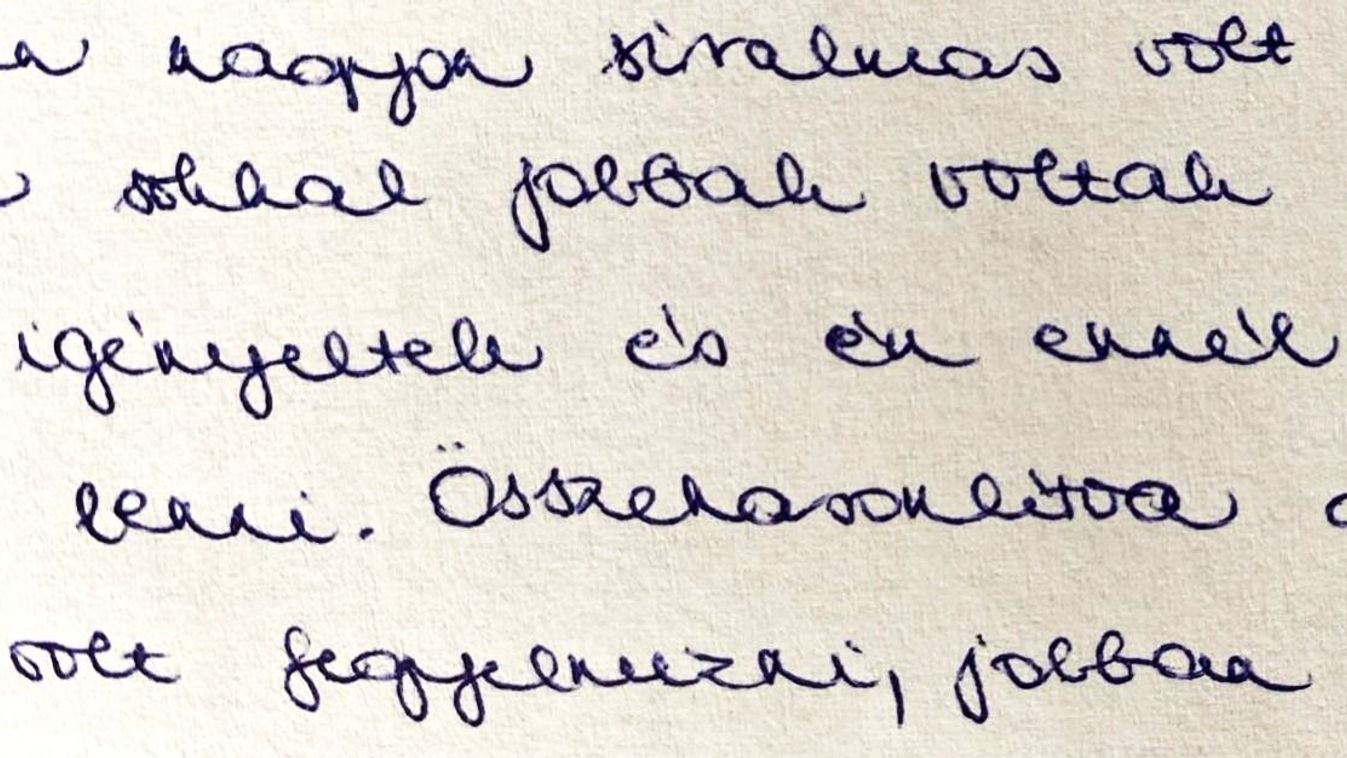 nagyon siralmas volt
sokkal jobbak voltak
igényeltek és én ennél
lenni. Összehasonlitva
volt fegyelmezni, jobban